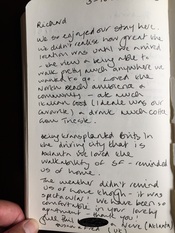 Richard
We so enjoyed our stay here.
We didn't realise how great the
location was until we arrived
- the view & being able to
walk pretty much anywhere we
wanted to go. Loved the
North Beach ambience &
community - ate much
Italian food (Ideale was our
favourite) & drank much coffee
from Trieste.
Being transplanted Brits in
the driving city that is
Atlanta we loved the
walkability of SF - reminded
us of home.
The weather didn't remind
us of home though - it was
spectacular! We have been so
comfortable in your lovely
apartment - thank you!
Neve (Atlanta)